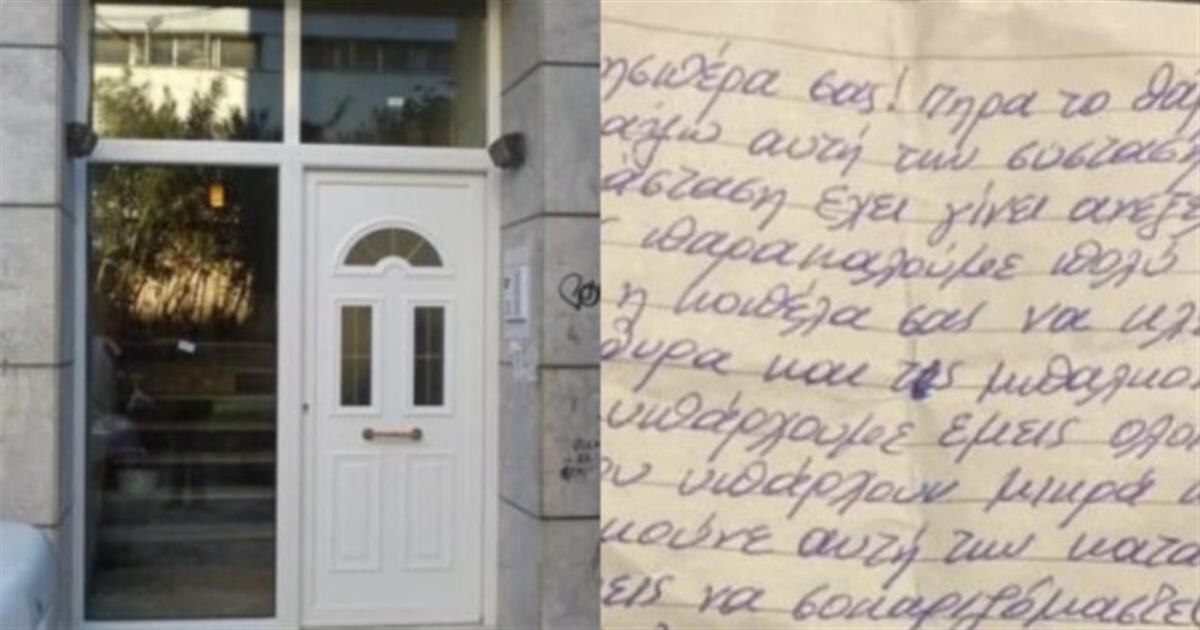 ησπέρα σας! Πηρα το θαρ
αλω αυτή την σύσταση
άσταση έχει γίνει ανεξε
παρακαλούμε πολύ
η κοπέλα σας να κλ
θυρα και τις μπαλκο
υπάρχουμε εμεις ολοι
ου υπάρχουν μικρά
κούνε αυτή την κατα
εις να σοκαριζόμαστε